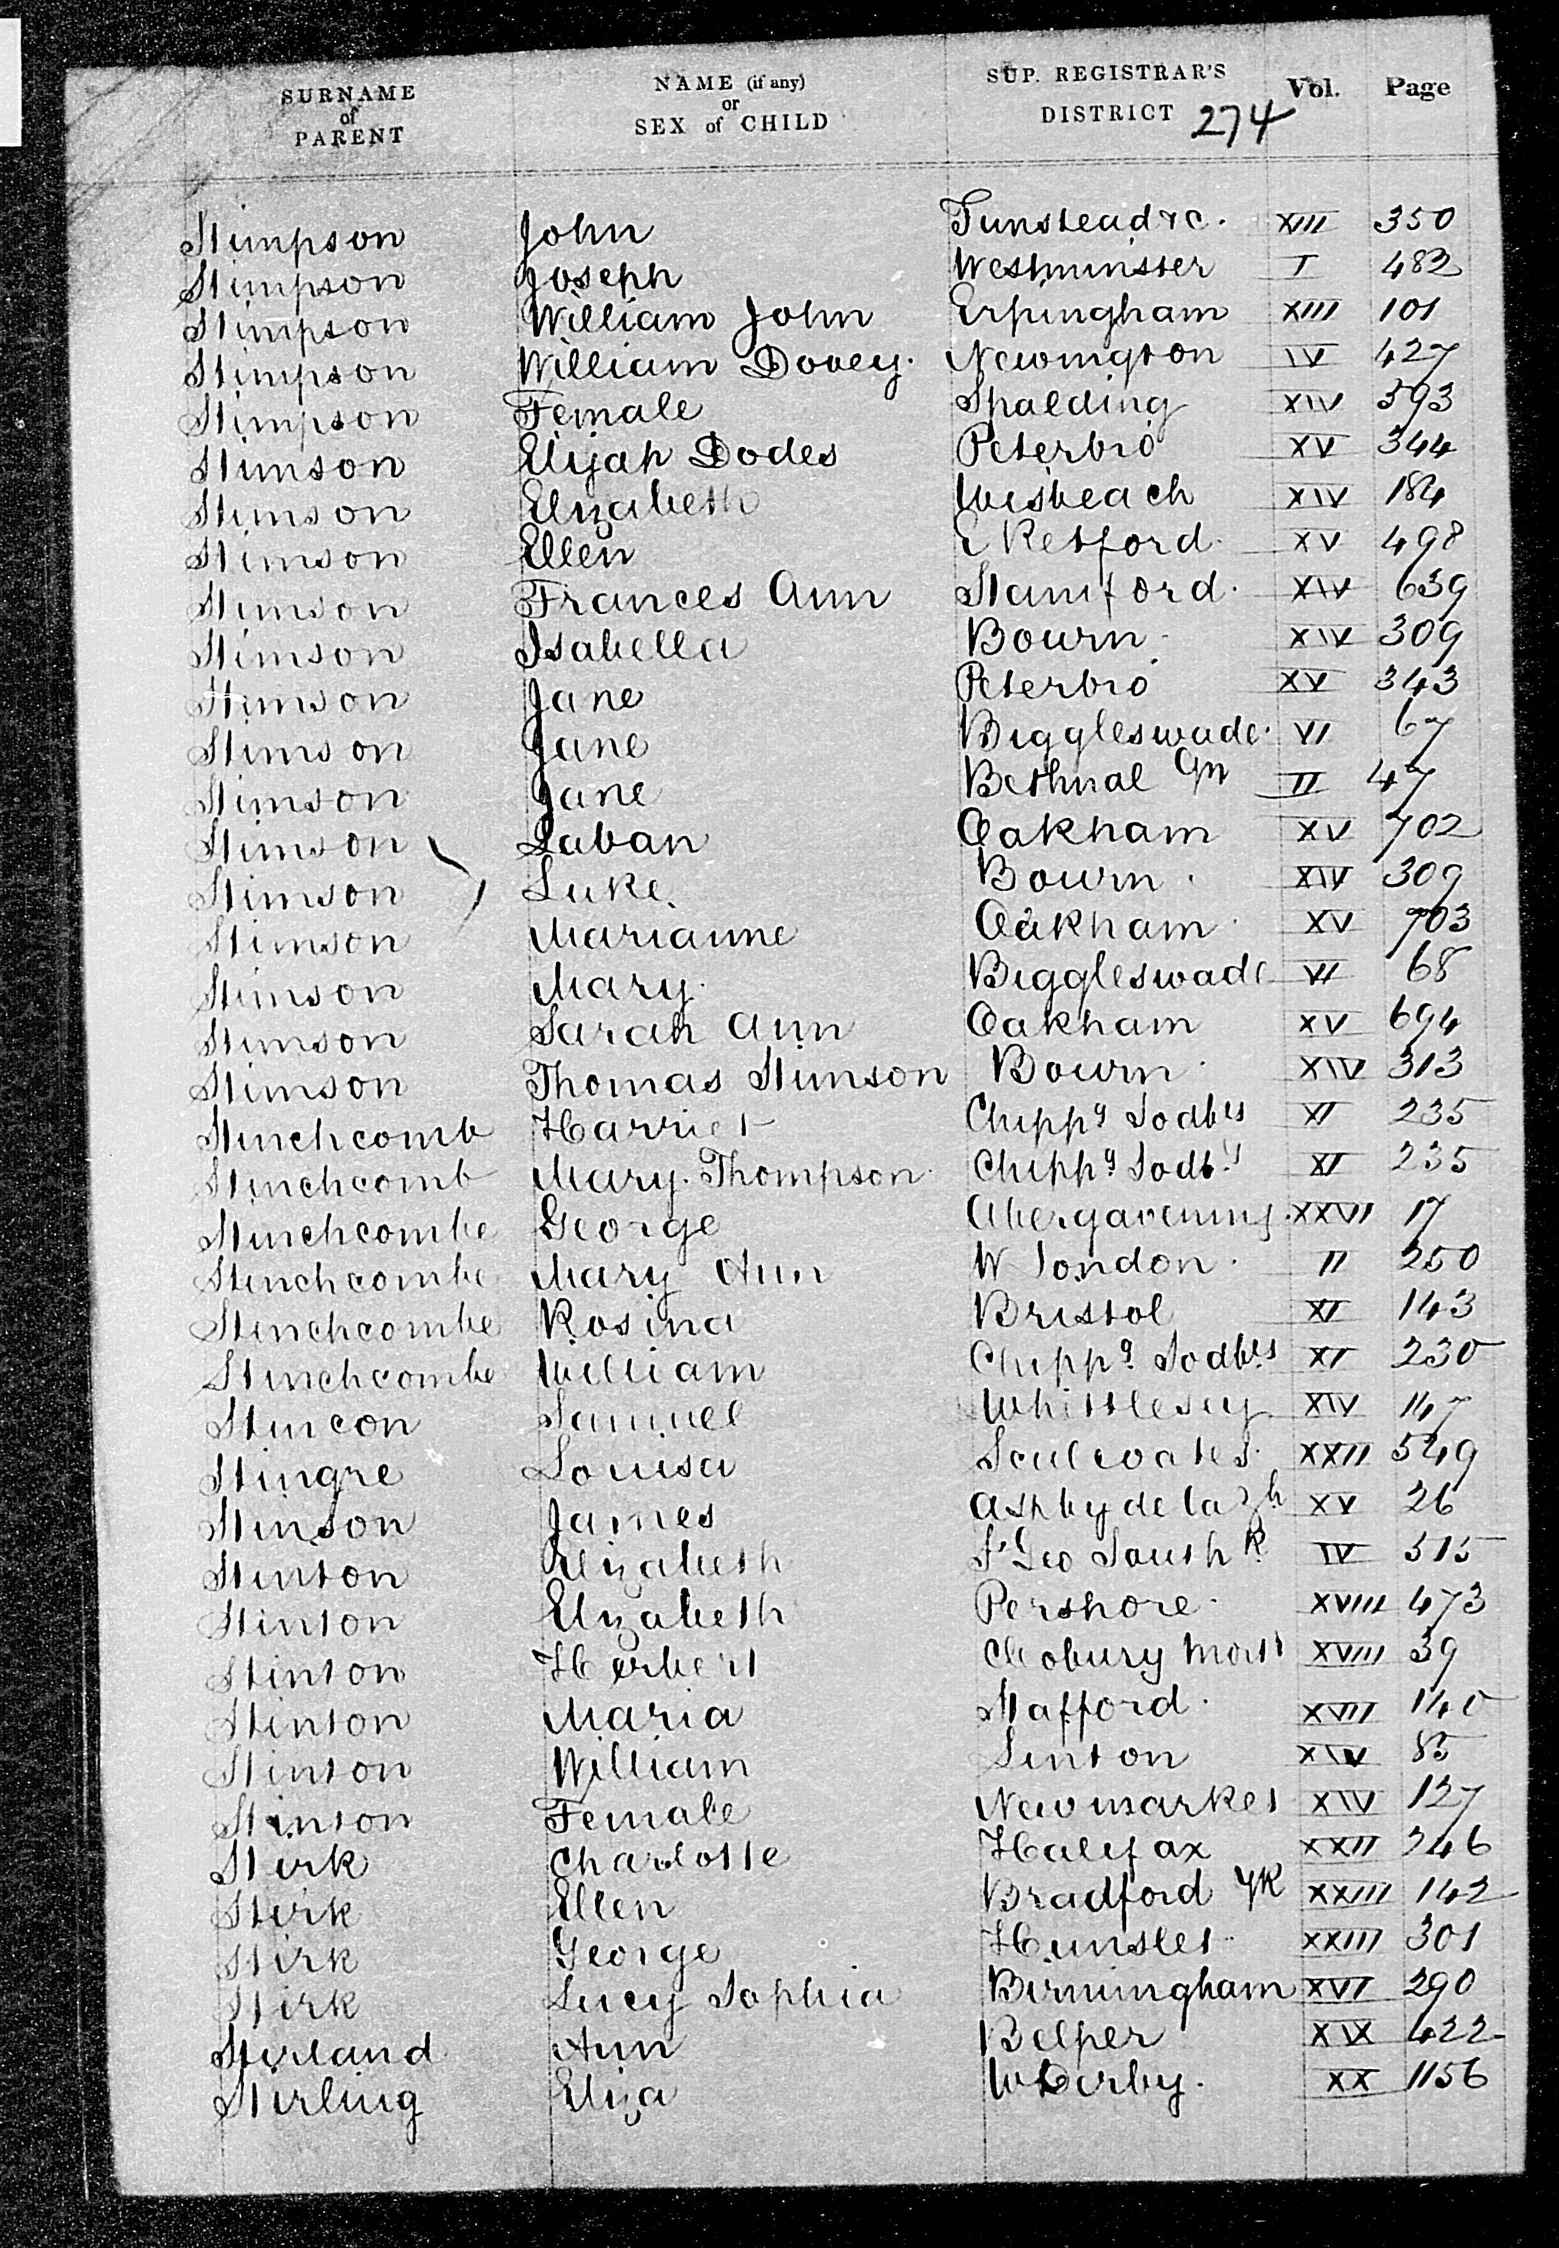 SURNAME of PARENT NAME (if any) or SEX of CHILD SUP. REGISTRAR'S DISTRICT 274 Vol. Page
Stimpson John Tunstead &c. XIII 350
Stimpson Joseph Westminster I 482
Stimpson William John Erpingham XIII 101
Stimpson William Dovey. Newington IV 427
Stimpson Female Spalding XIV 593
Stimson Elijah Dodes Peterbro XV 344
Stimson Elizabeth Wisbeach XIV 184
Stimson Ellen E Retford. XV 498
Stimson Frances Ann Stamford. XIV 639
Stimson Isabella Bourn. XIV 309
Stimson Jane Peterbro XV 343
Stimson Jane Biggleswade. VI 67
Stimson Jane Bethnal Gn II 47
Stimson Laban Oakham XV 702
Stimson Luke. Bourn. XIV 309
Stimson Marianne Oakham. XV 703
Stimson Mary. Biggleswade VI 68
Stimson Sarah Ann Oakham XV 694
Stimson Thomas Stimson Bourn. XIV 313
Stinchcomb Harriet Chippg Sodby XI 235
Stinchcomb Mary. Thompson. Chippg Sodby XI 235
Stinchcombe George Abergavenny. XXVI 17
Stinchcombe Mary Ann W London. II 250
Stinchcombe Rosina Bristol XI 143
Stinchcombe William Chippg Sodby XI 230
Stincon Samuel Whittlesey XIV 147
Stingre Louisa Sculcoates. XXII 549
Stinson James Ashby de la Zh XV 26
Stinton Elizabeth St Geo South k IV 515
Stinton Elizabeth Pershore. XVIII 473
Stinton Herbert Cleobury Mort XVIII 39
Stinton Maria Stafford. XVII 140
Stinton William Linton XIV 85
Stinton Female Newmarket XIV 127
Stirk Charlotte Halifax XXII 246
Stirk Ellen Bradford YK XXIII 142
Stirk George Hunslet. XXIII 301
Stirk Lucy Sophia Birmingham XVI 290
Stirland Ann Belper XIX 422
Stirling Eliza W Derby. XX 1156